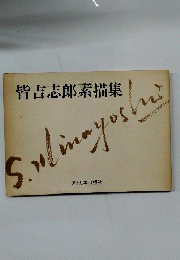 皆吉志郎素描集
S. Minayoshi